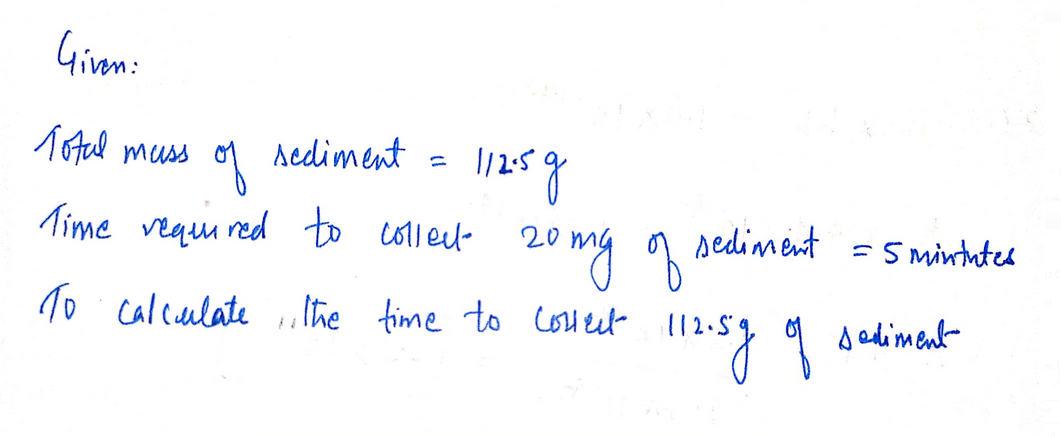 Given:
Total mass of sediment = 112.5 g
Time required to collect 20 mg of sediment = 5 mintutes
To calculate the time to collect 112.5g of sediment